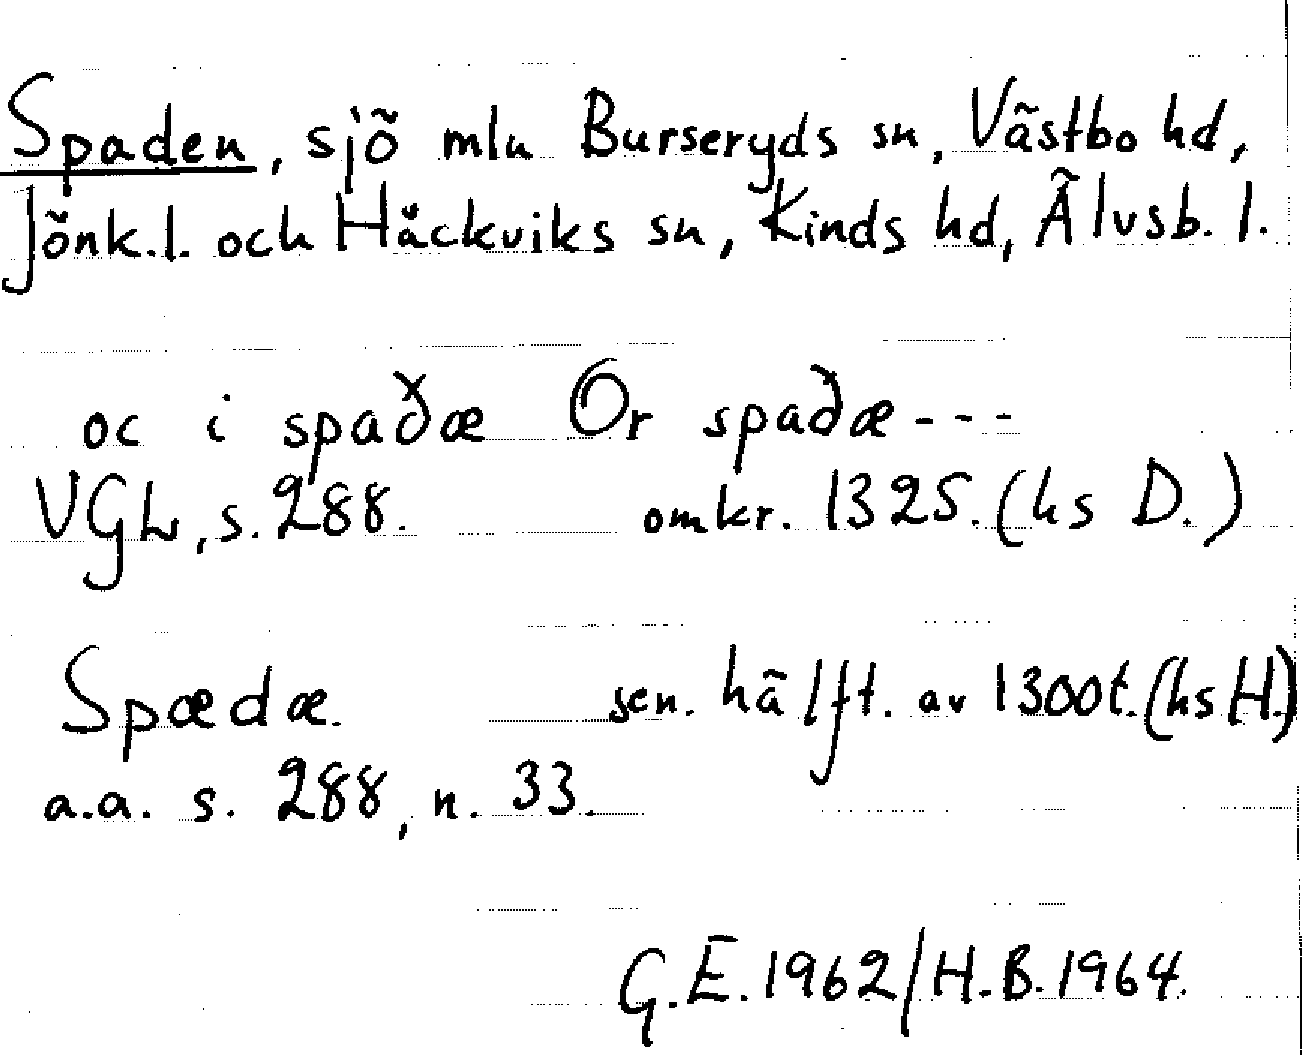 Spaden, sjö mln Burseryds sn, Västbo hd,
Jönk.l. och Håckviks sn, Kinds hd, Älvsb. l.
oc i spaðæ Or spaðæ---
VGL, s. 288. omkr. 1325. (hs D.)
Spædæ. sen. hälft. av 1300t. (hs H.)
a.a. s. 288, n. 33.
G.E. 1962/H.B. 1964.